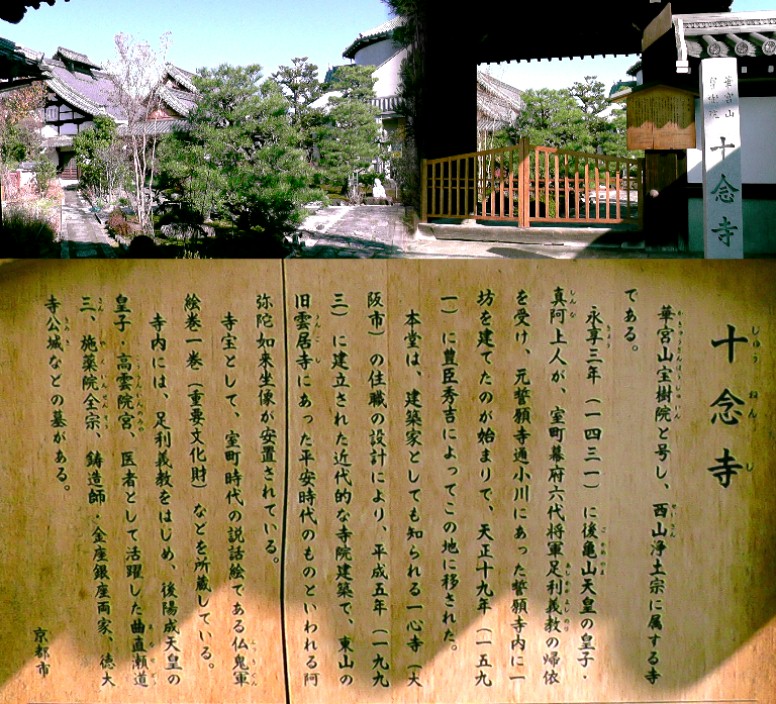 華宮山
宝樹院
十念寺
十念寺
じゅうねんじ
華宮山宝樹院と号し、西山浄土宗に属する寺
である。
永享三年（一四三一）に後亀山天皇の皇子・
真阿上人が、室町幕府六代将軍足利義教の帰依
を受け、元誓願寺通小川にあった誓願寺内に一
坊を建てたのが始まりで、天正十九年（一五九
一）に豊臣秀吉によってこの地に移された。
本堂は、建築家としても知られる一心寺（大
阪市）の住職の設計により、平成五年（一九九
三）に建立された近代的な寺院建築で、東山の
旧雲居寺にあった平安時代のものといわれる阿
弥陀如来坐像が安置されている。
寺宝として、室町時代の説話絵である仏鬼軍
絵巻一巻（重要文化財）などを所蔵している。
寺内には、足利義教をはじめ、後陽成天皇の
皇子・高雲院宮、医者として活躍した曲直瀬道
三、施薬院全宗、鋳造師・金座銀座両家、徳大
寺公城などの墓がある。
京都市